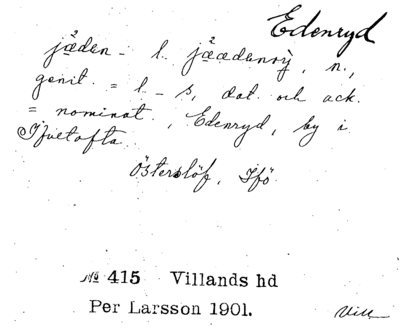 Edenryd
jåden- l. jåædenrỳ, n.,
genit. = l - s, dat. och ack.
= nominat., Edenryd, by i
Ifvetofta.
Österslöf, Ifö
№ 415 Villands hd
Per Larsson 1901.
Vill